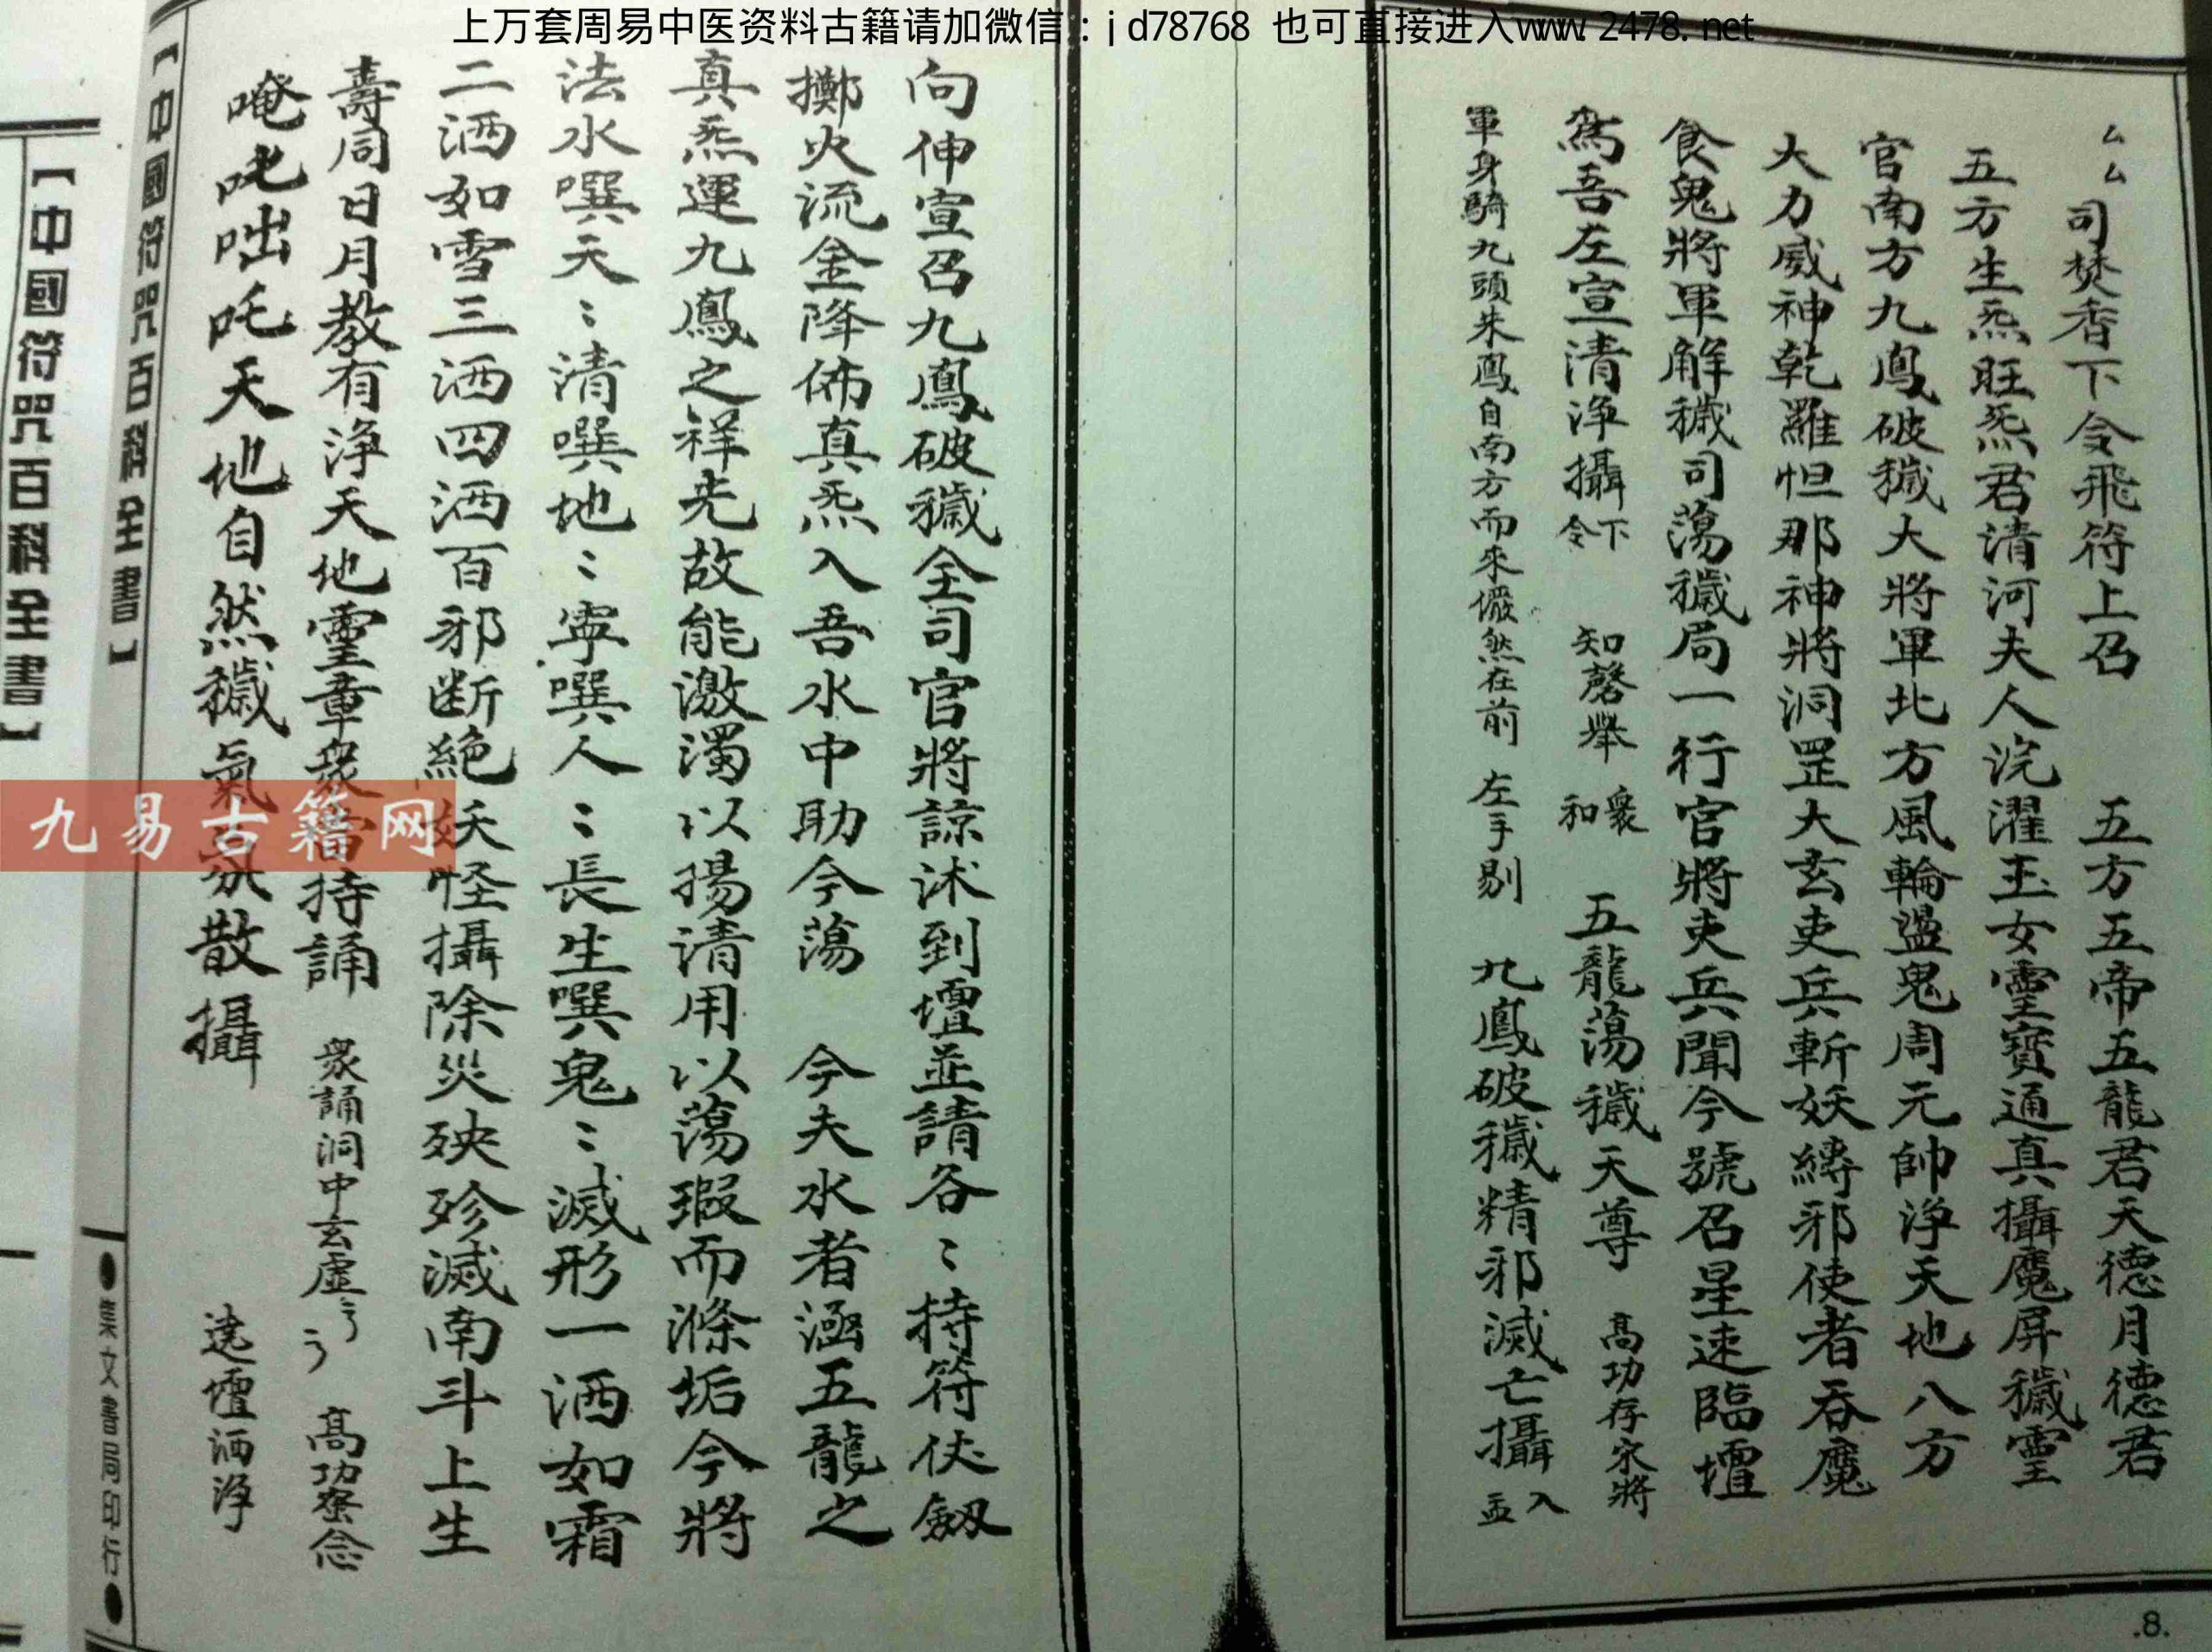 上万套周易中医资料古籍请加微信：jd78768 也可直接进入www.2478.net
厶厶司焚香下令飛符上召 五方五帝五龍君天德月德君
五方生炁旺炁君清河夫人浣濯玉女靈寶通真攝魔屏穢靈
官南方九鳳破穢大將軍北方風輪盪鬼周元帥淨天地八方
大力威神乾羅怛那神將洞罡大玄吏兵斬妖縛邪使者吞魔
食鬼將軍解穢司蕩穢局一行官將吏兵聞今號召星速臨壇
為吾左宣清淨攝 下令 知磬舉 衆和 五龍蕩穢天尊 高功存宋將
軍身騎九頭朱鳳自南方而來儼然在前 左手剔 九鳳破穢精邪滅亡攝 入盂
.8.
向伸宣召九鳳破穢全司官將諒沭到壇並請各〻持符伏劔
擲火流金降佈真炁入吾水中助今蕩 今夫水者涵五龍之
真炁運九鳳之祥先故能激濁以揚清用以蕩瑕而滌垢今將
法水噀天〻清噀地〻寧噀人〻長生噀鬼〻滅形一洒如霜
二洒如雪三洒四洒百邪断絕妖怪攝除災殃殄滅南斗上生
壽同日月教有淨天地靈章衆當持誦 衆誦洞中玄虛 高功密念
唵吪咄吒天地自然穢氣氛散攝 遶壇洒淨
【中國符咒百科全書】
●集文書局印行●
【中國符咒百科全書】
九易古籍网